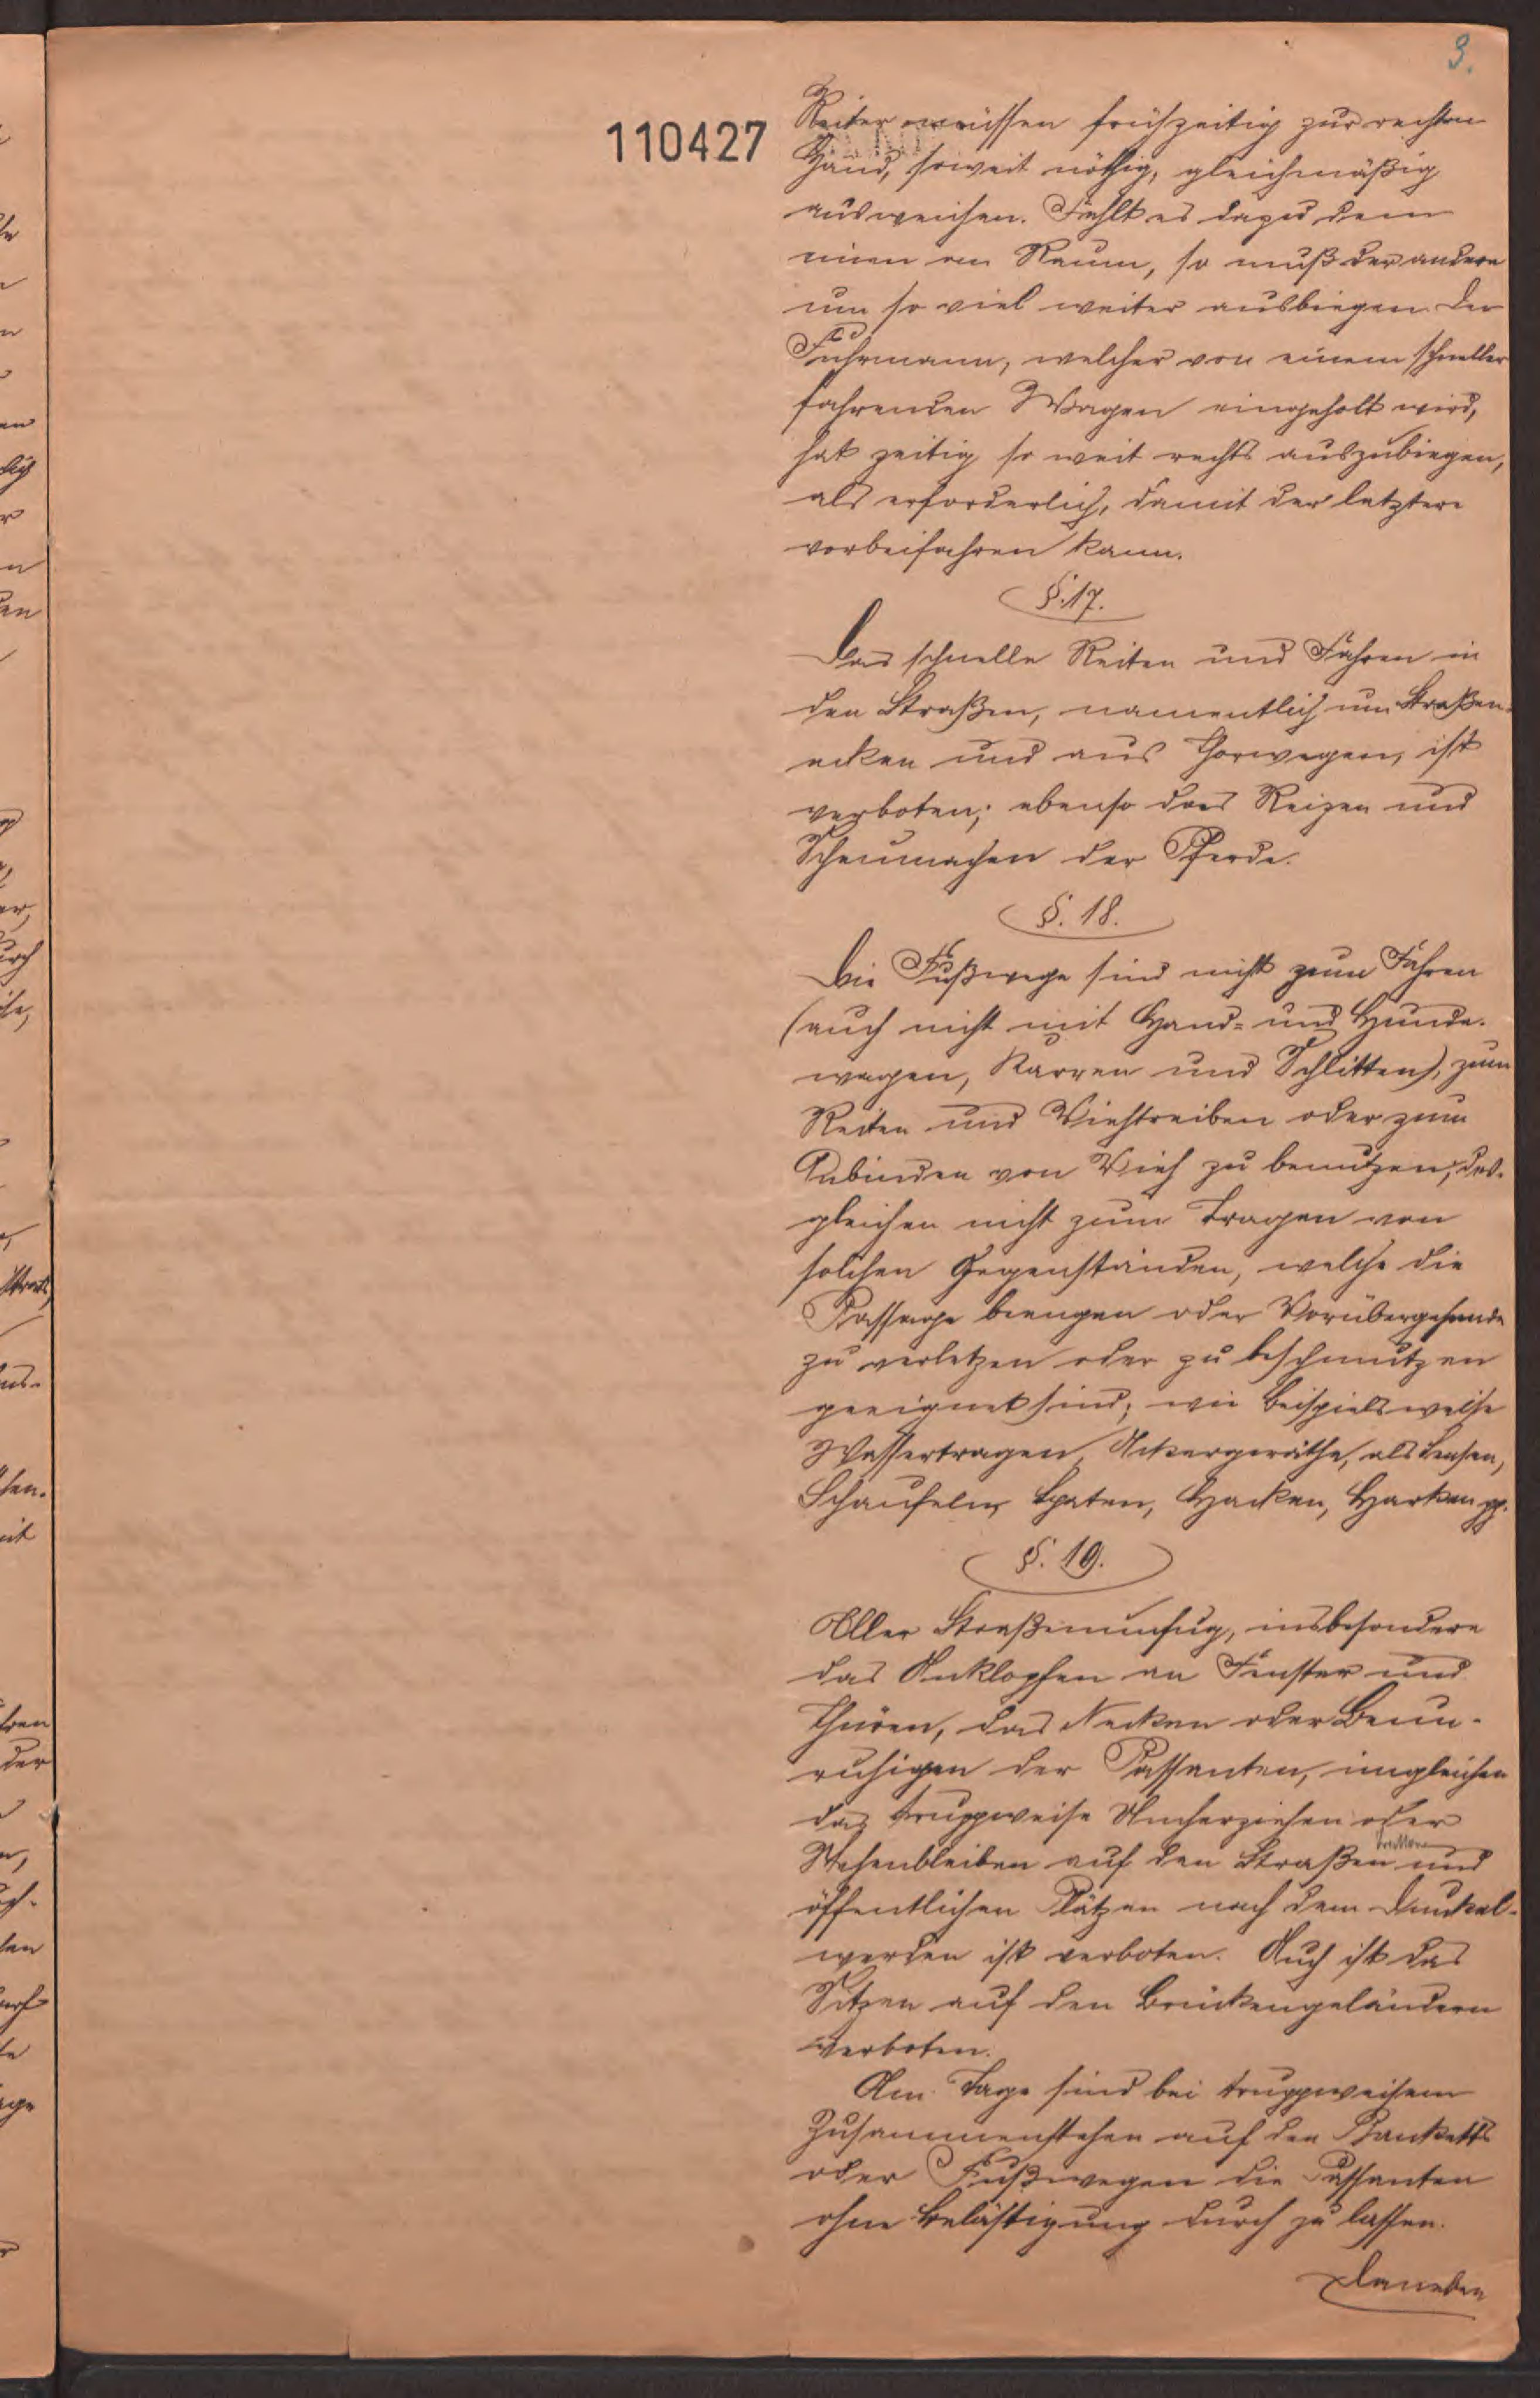 3.
110427
Reiter müssen frühzeitig zur rechten
Hand, soweit nöthig, gleichmäßig
ausweichen. Fehlt es dazu dem
einen an Raum, so muß der andere
um so viel weiter ausbiegen. Der
Fuhrmann, welcher von einem schneller
fahrenden Wagen eingeholt wird,
hat zeitig so weit rechts auszubiegen,
als erforderlich, damit der letztere
vorbeifahren kann.
§. 17.
Das schnelle Reiten und Fahren in
den Straßen, namentlich um Straßen-
ecken und aus Thorwegen, ist
verboten; ebenso das Reizen und
Scheumachen der Pferde.
§. 18.
Die Fußwege sind nicht zum Fahren
(auch nicht mit Hand- und Hunde-
wagen, Karren und Schlitten), zum
Reiten und Viehtreiben oder zum
Anbinden von Vieh zu benutzen, des-
gleichen nicht zum Tragen von
solchen Gegenständen, welche die
Passage beengen oder Vorübergehende
zu verletzen oder zu beschmutzen
geeignet sind, wie beispielsweise
Wassertragen, Ackergeräthe, als Sensen,
Schaufeln, Spaten, Hacken, Harken pp.
§. 19.
Aller Straßenunfug, insbesondere
das Anklopfen an Fenster und
Thüren, das Necken oder Beun-
ruhigen der Passanten, imgleichen
das truppweise Umherziehen oder
Stehenbleiben auf den Straßen und
öffentlichen Plätzen nach dem Dunkel-
werden ist verboten. Auch ist das
Sitzen auf den Brückengeländern
verboten.
Am Tage sind bei truppweisem
Zusammenstehen auf den Banketts
oder Fußwegen die Passanten
ohne Belästigung durch zu lassen.
Daneben